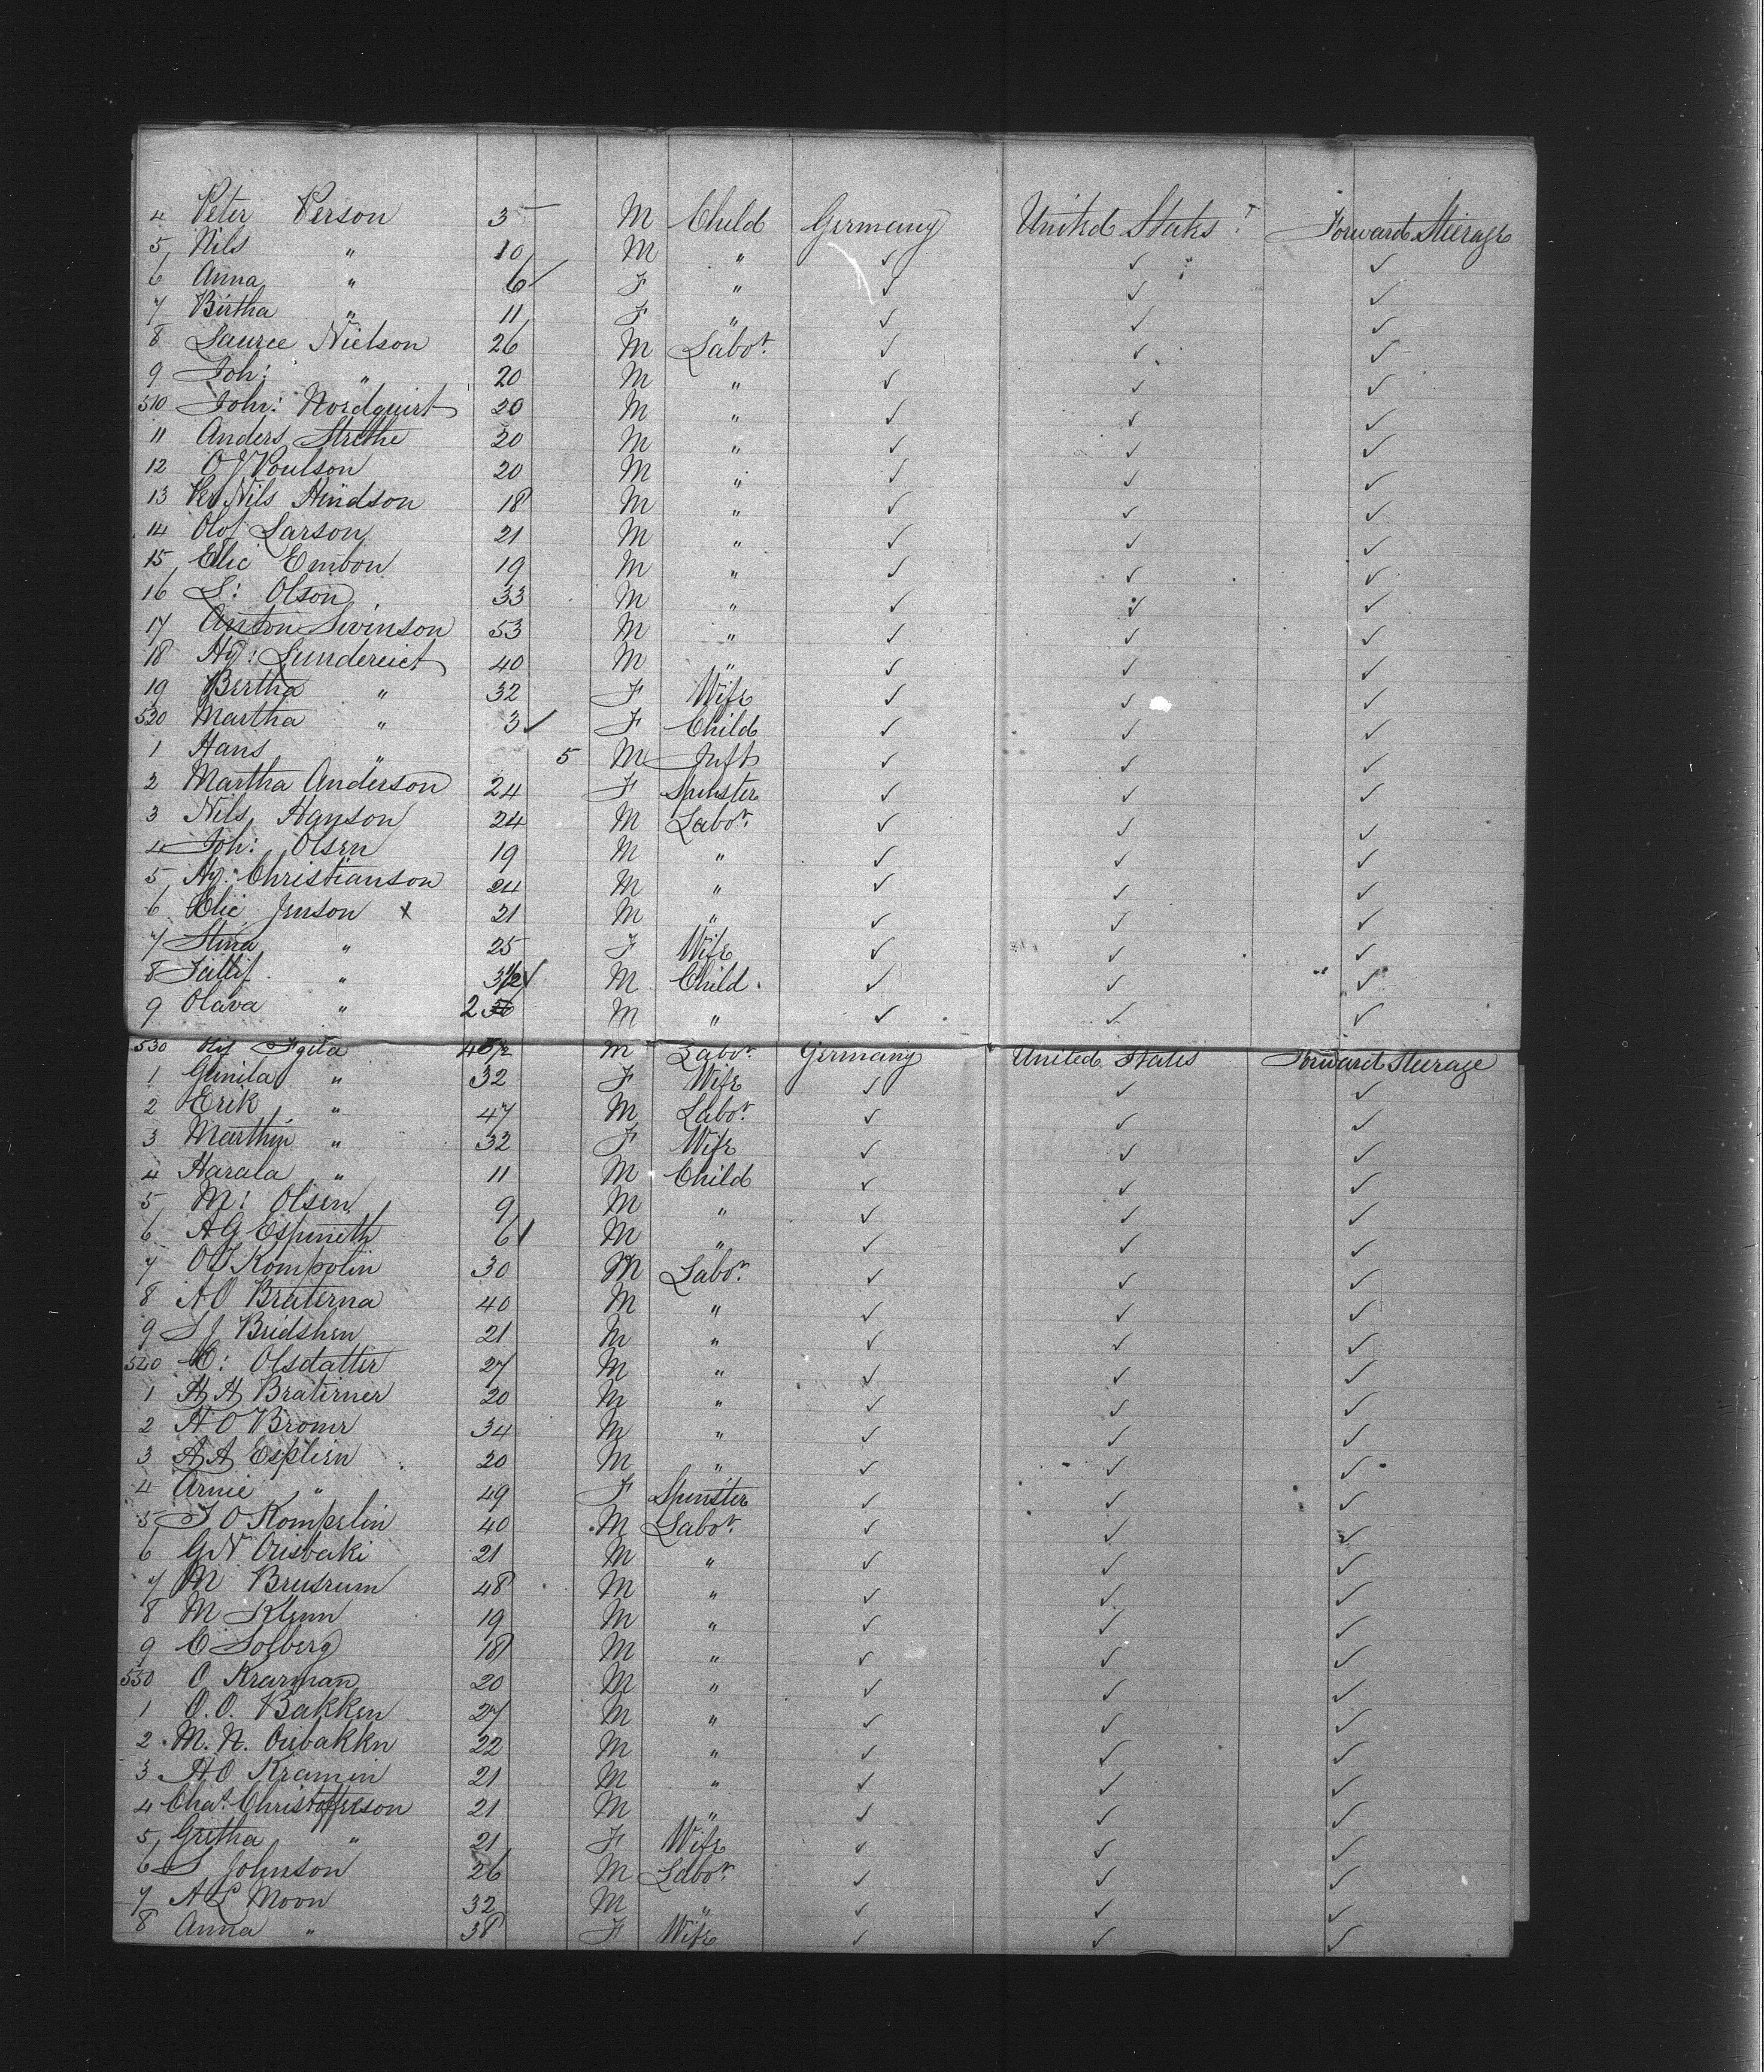 4 Peter Person 3 M Child Germany United States Forward Steerage
5 Nils " 10 M " ✓ ✓ ✓
6 Anna " 6 ✓ F " ✓ ✓ ✓
7 Birtha " 11 F " ✓ ✓ ✓
8 Lauree Nielson 26 M Labor. ✓ ✓ ✓
9 Joh: " 20 M " ✓ ✓ ✓
510 Joh: Nordquirt 20 M " ✓ ✓ ✓
11 Anders 20 M " ✓ ✓ ✓
12 O J Poulson 20 M " ✓ ✓ ✓
13 Nils Hindson 18 M " ✓ ✓ ✓
14 Olof Larson 21 M " ✓ ✓ ✓
15 Elic Embon 19 M " ✓ ✓ ✓
16 S: Olson 33 M " ✓ ✓ ✓
17 Anton Sivinson 53 M " ✓ ✓ ✓
18 Hy: Lundereict 40 M " ✓ ✓ ✓
19 Bertha " 32 F Wife ✓ ✓ ✓
520 Martha " 3 ✓ F Child ✓ ✓ ✓
1 Hans " 5 M Inft ✓ ✓ ✓
2 Martha Anderson 24 F Spinster ✓ ✓ ✓
3 Nils Hanson 24 M Labor. ✓ ✓ ✓
4 Joh: Olsen 19 M " ✓ ✓ ✓
5 Hy: Christianson 24 M " ✓ ✓ ✓
6 Elic Jenson x 21 M " ✓ ✓ ✓
7 Stina " 25 F Wife ✓ ✓ ✓
8 " 3 1/2 M Child. ✓ ✓ ✓
9 Olava " 2 M " ✓ ✓ ✓
530 M Labor. Germany United States Forward Steerage
1 Gunila " 32 F Wife ✓ ✓ ✓
2 Erik " 47 M Labor. ✓ ✓ ✓
3 Marthin " 32 F Wife ✓ ✓ ✓
4 Harala " 11 M Child ✓ ✓ ✓
5 M: Olsen 9 M " ✓ ✓ ✓
6 A G Espineth 6 M " ✓ ✓ ✓
7 Kompolin 30 M Labor. ✓ ✓ ✓
8 A O Braterna 40 M " ✓ ✓ ✓
9 S J Bridshen 21 M " ✓ ✓ ✓
540 C: Olsdatter 27 M " ✓ ✓ ✓
1 A A Bratirner 20 M " ✓ ✓ ✓
2 A O Bromr 34 M " ✓ ✓ ✓
3 A A Esplien 20 M " ✓ ✓ ✓
4 Arnie " 49 F Spinster ✓ ✓ ✓
5 J O Kompelin 40 M Labor. ✓ ✓ ✓
6 G N Ousbaki 21 M " ✓ ✓ ✓
7 M Brusrum 48 M " ✓ ✓ ✓
8 M Klenn 19 M " ✓ ✓ ✓
9 C Solberg 18 M " ✓ ✓ ✓
550 O Krarman 20 M " ✓ ✓ ✓
1 O. O. Bakken 27 M " ✓ ✓ ✓
2 M. N. Ousbakkn 22 M " ✓ ✓ ✓
3 A O Kramin 21 M " ✓ ✓ ✓
4 Chas. Christofferson 21 M " ✓ ✓ ✓
5 Gretha " 21 F Wife ✓ ✓ ✓
6 S Johnson 26 M Labor. ✓ ✓ ✓
7 A L Moon 32 M " ✓ ✓ ✓
8 Anna " 38 F Wife ✓ ✓ ✓